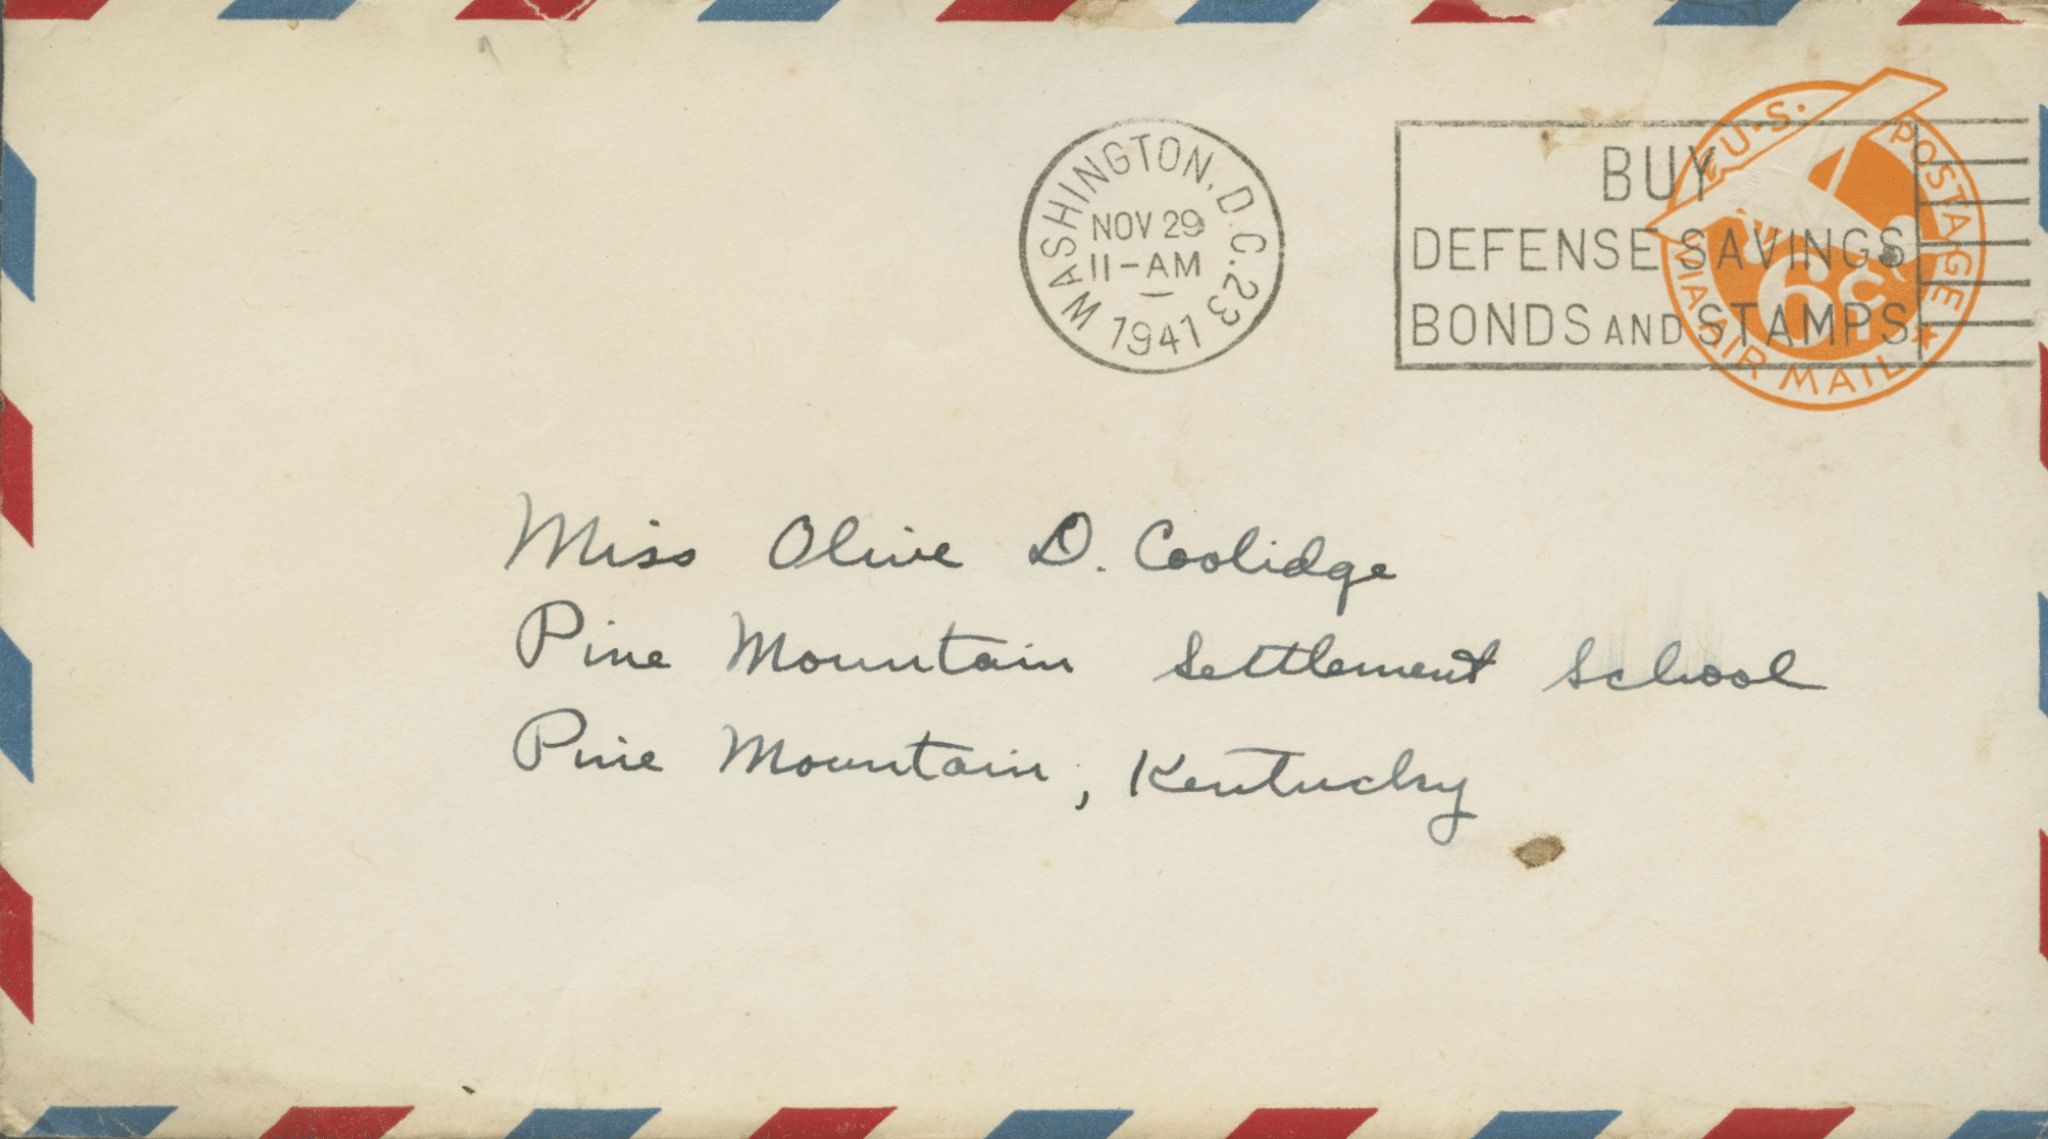 WASHINGTON, D.C. 23
NOV 29
11-AM
1941
BUY
DEFENSE SAVINGS
BONDS AND STAMPS
U.S. POSTAGE
6¢
VIA AIR MAIL
Miss Olive D. Coolidge
Pine Mountain Settlement School
Pine Mountain, Kentucky